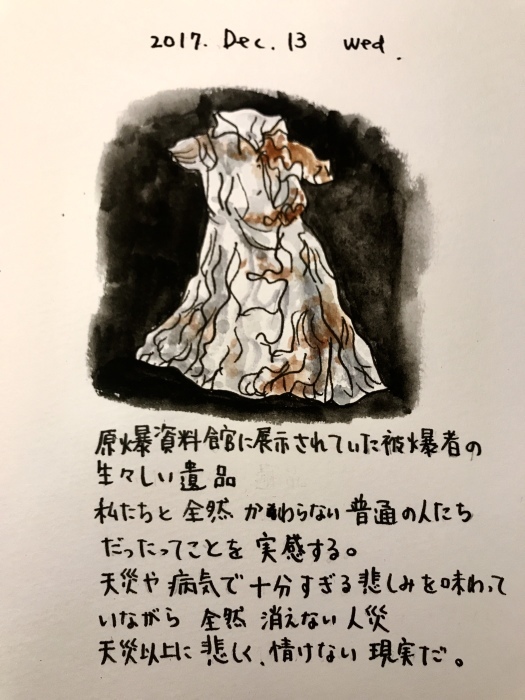 2017. Dec. 13 wed.
原爆資料館に展示されていた被爆者の
生々しい遺品
私たちと全然かわらない普通の人たち
だったってことを実感する。
天災や病気で十分すぎる悲しみを味わって
いながら全然消えない人災
天災以上に悲しく、情けない現実だ。